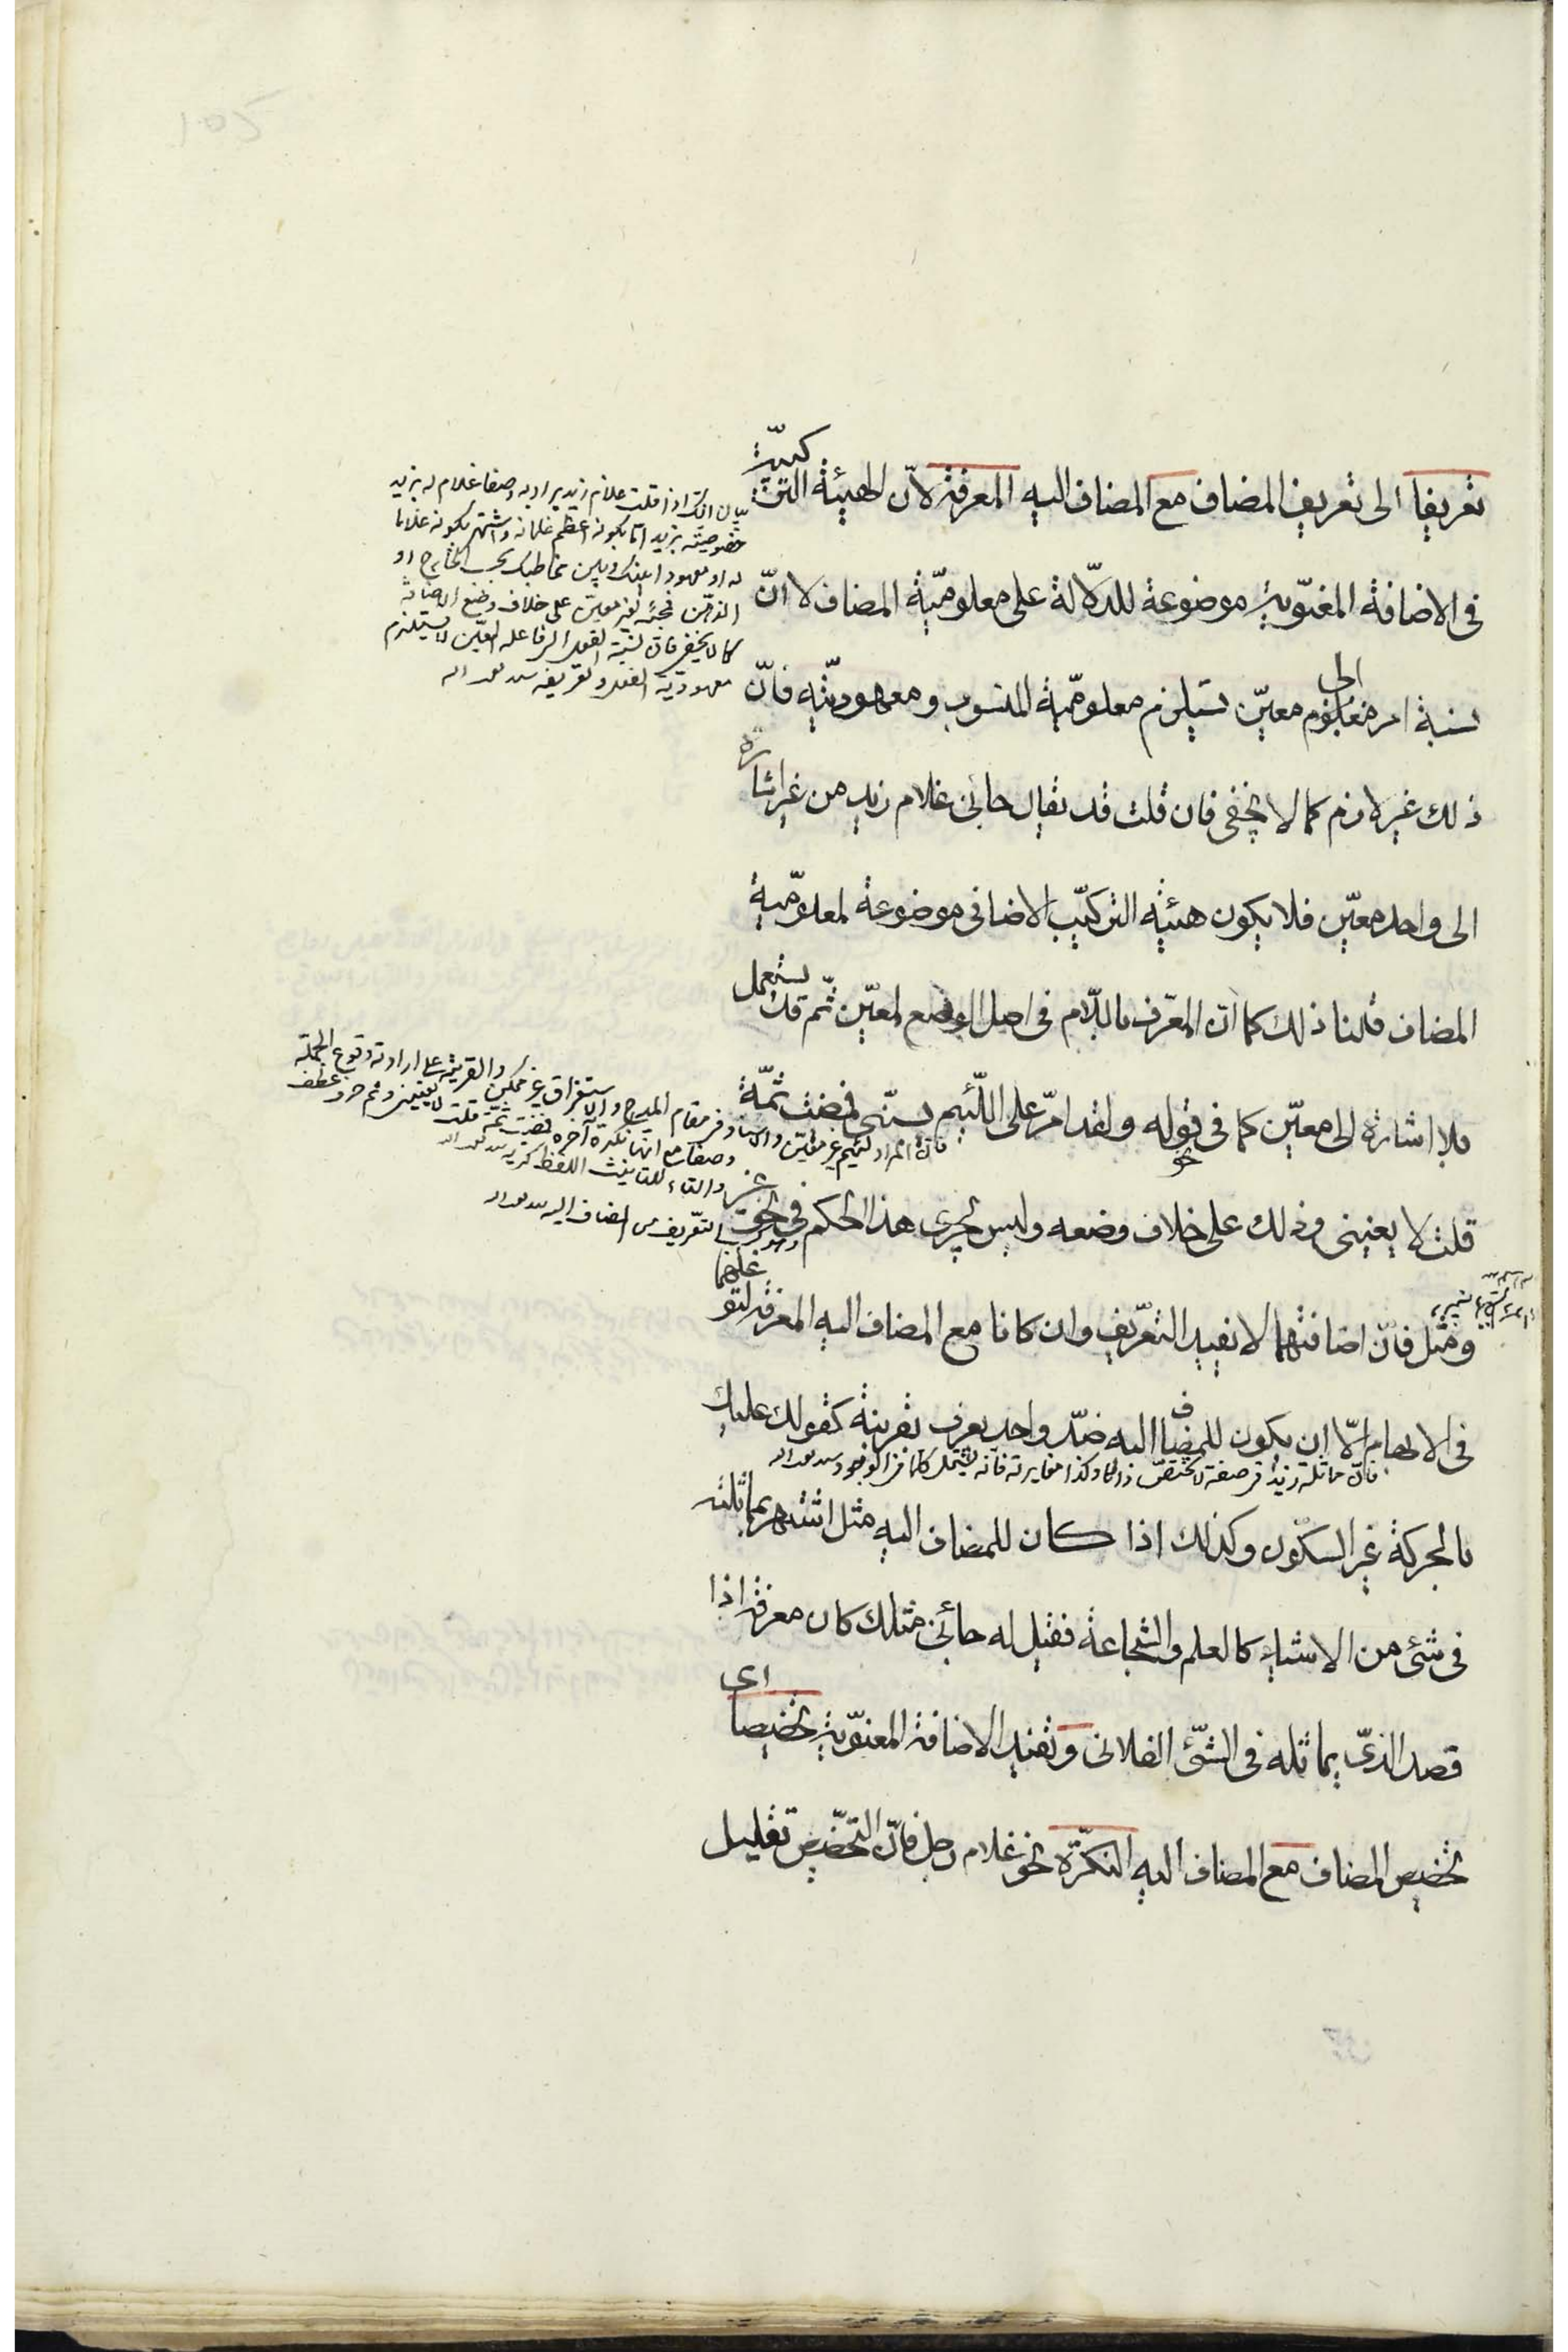 تعريفا الى تعريف المضاف مع المضاف اليه المعرفة لانّ الهيئة التركيبيّة
في الاضافة المعنوّية موضوعة للدلّالة على معلوميّة المضاف لا انّ
نسبة امر الى معلوم معيّن تستلزم معلوميّة المنسوب ومعهوديّته فانّ
ذلك غير لازم كما لا يخفى فان قلت قد يقال جائني غلام زيد من غير اشارة
الى واحد معيّن فلا يكون هيئية التركيب الاضافي موضوعة لمعلوميّة
المضاف قلنا ذلك كما انّ المعرّف باللّام في اصل الوضع لمعيّن ثمّ قد يستعمل
بلا اشارة الى معيّن كما في قوله ولقد امرّ على اللّئيم يسبّني فمضيت ثمّة
قلت لا يعنيني وذلك على خلاف وضعه وليس يجرى هذا الحكم في نحو غير
ومثل فانّ اضافتهما لا يفيد التعريف وان كانا مع المضاف اليه المعرفة لتوغلهما
في الابهام الّا ان يكون للمضاف اليه ضدّ واحد يعرف بغيريته كقولك عليك
بالحركة غير السكون وكذلك اذا كان للمضاف اليه مثل اشتهر بمماثلته
في شئ من الاشياء كالعلم والشجاعة فقيل له جائني مثلك كان معرفة اذا
قصد الذي يماثله في الشئ الفلاني وتفيد الاضافة المعنوّية تخصيصا اى
تخصيص المضاف مع المضاف اليه النكرة نحو غلام رجل فانّ التخصيص تقليل
بيان ذلك اذا قلت غلام زيد يراد به وصفا غلام له مزيد
خصوصيته بزيد امّا بكونه اعظم غلمانه واشتهر بكونه غلاما
له او معهودا بينك وبين مخاطبك بحسب الخارج او
الذهن فمجيئه لغير معيّن على خلاف وضع الاضافة
كما لا يخفى فان نسبة الفعل الى فاعله المعيّن لا يستلزم
معهودية الفعل وتعريفه
فانّ المراد لئيم غير معيّن
والتاء للتانيث اللفظ
فانّ مماثلة زيد في صفة لا تختص ذاتا وكذا مغايرته فانه يشمل كلما في الوجود